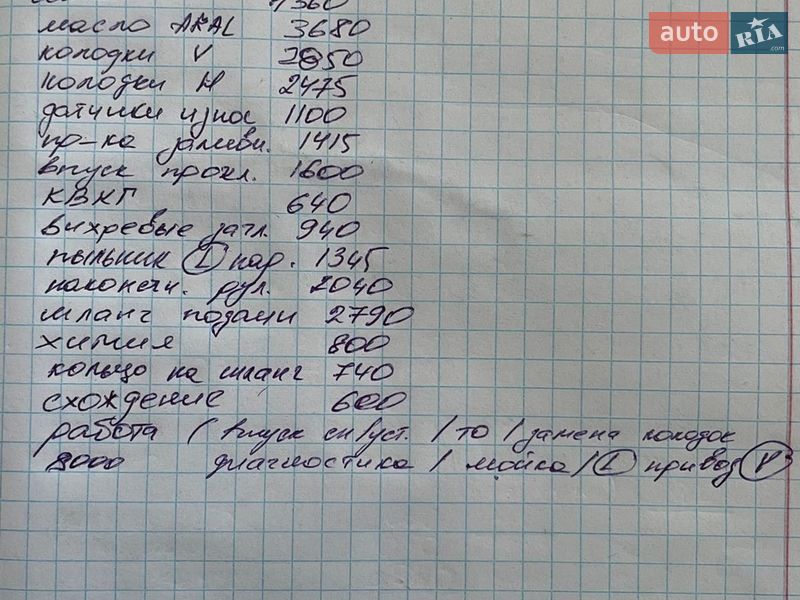 1360
масло ARAL 3680
колодки V 2950
колодки H 2475
датчики износ 1100
пр-ка заливн. 1415
впуск прокл. 1600
КВКГ 640
вихревые загл. 940
пыльник L нар. 1345
наконечн. рул. 2040
шланг подачи 2790
химия 800
кольцо на шланг 740
схождение 600
работа ( впуск сн/уст. / ТО / замена колодок
8000 диагностика / мойка / L привод V
auto RIA .com